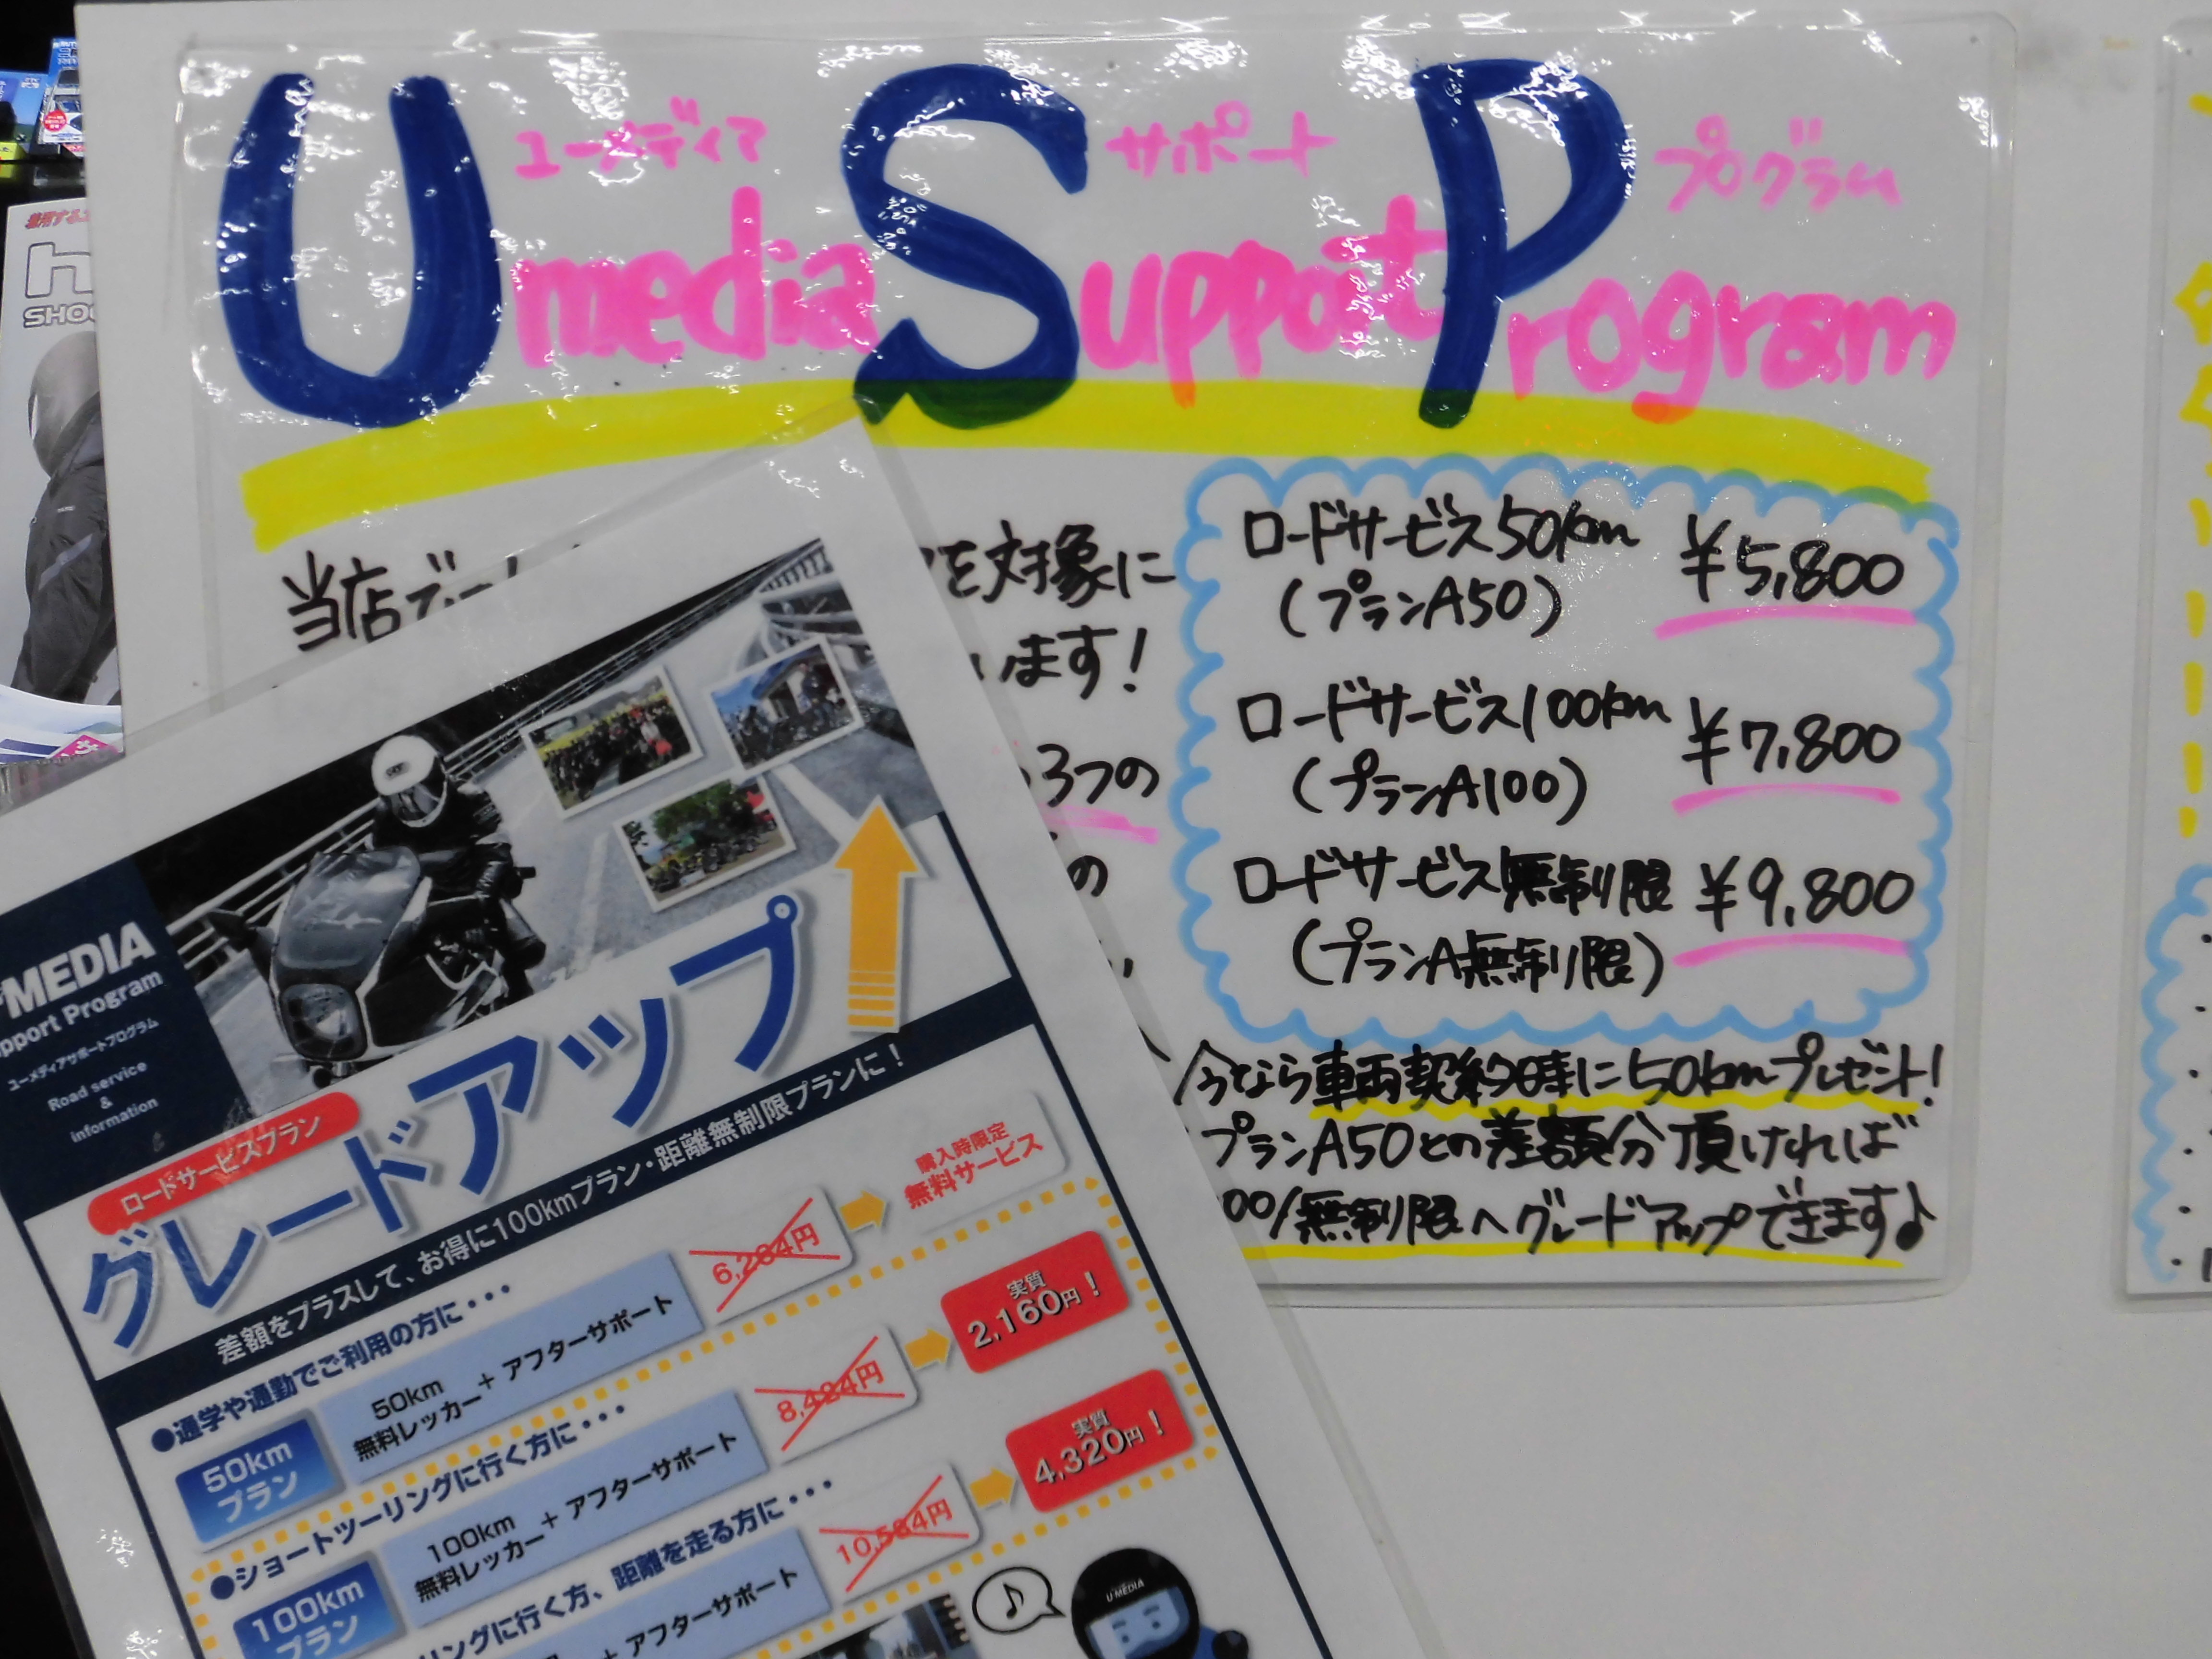 ユーメディア サポート プログラム
Umedia Support Program
当店で
を対象に
います!
3つの
の
ロードサービス50km ¥5,800
(プランA50)
ロードサービス100km ¥7,800
(プランA100)
ロードサービス無制限 ¥9,800
(プランA無制限)
今なら車両契約時に50kmプレゼント!
プランA50との差額分頂ければ
00/無制限へグレードアップできます♪
MEDIA
pport Program
ユーメディアサポートプログラム
Road service
&
information
ロードサービスプラン
グレードアップ
差額をプラスして、お得に100kmプラン・距離無制限プランに!
●通学や通勤でご利用の方に・・・
50km
プラン
50km
無料レッカー + アフターサポート
6,264円
購入時限定
無料サービス
●ショートツーリングに行く方に・・・
100km
プラン
100km
無料レッカー + アフターサポート
8,424円
実質
2,160円!
リングに行く方、距離を走る方に・・・
+ アフターサポート
10,584円
実質
4,320円!
♪
U MEDIA
SHO